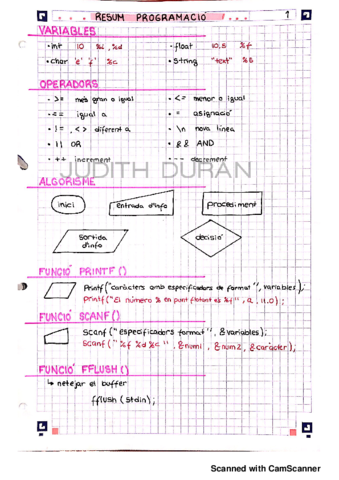 RESUM PROGRAMACIÓ 1
VARIABLES
· int 10 %i, %d · float 10,5 %f
· char 'e' 'f' %c · string "text" %s
OPERADORS
· >= més gran o igual · <= menor o igual
· == igual a · = asignació
· !=, <> diferent a · \n nova línea
· || OR · && AND
· ++ increment · -- decrement
JUDITH DURAN
ALGORISME
inici entrada d'info procediment
sortida d'info decisió
FUNCIÓ PRINTF()
Printf("caràcters amb especificadors de format", variables);
printf("El número % en punt flotant és %f", a, 11.0);
FUNCIÓ SCANF()
Scanf("especificadors format", &variables);
Scanf("%f %d %c", &num1, &num2, &caràcter);
FUNCIÓ FFLUSH()
↳ netejar el buffer
fflush(stdin);
Scanned with CamScanner